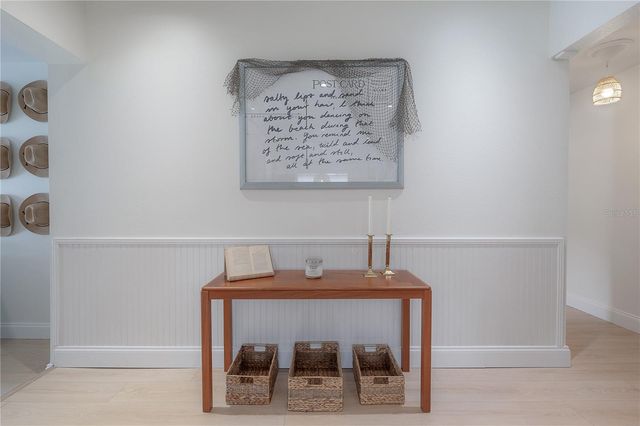 POST CARD
salty lips and sand
in your hair, I think
about you dancing on
the beach during that
storm. You remind me
of the sea, wild and loud
and soft and still,
all at the same time